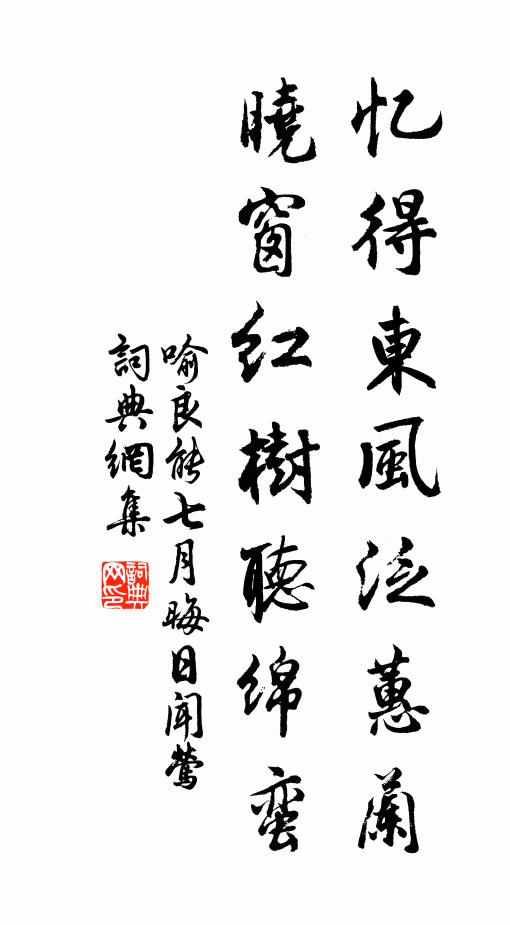 忆得東風泛蕙蘭
曉窗红樹聴绵蛮
喻良能七月晦日闻鶯
詞典網集
詞典网印